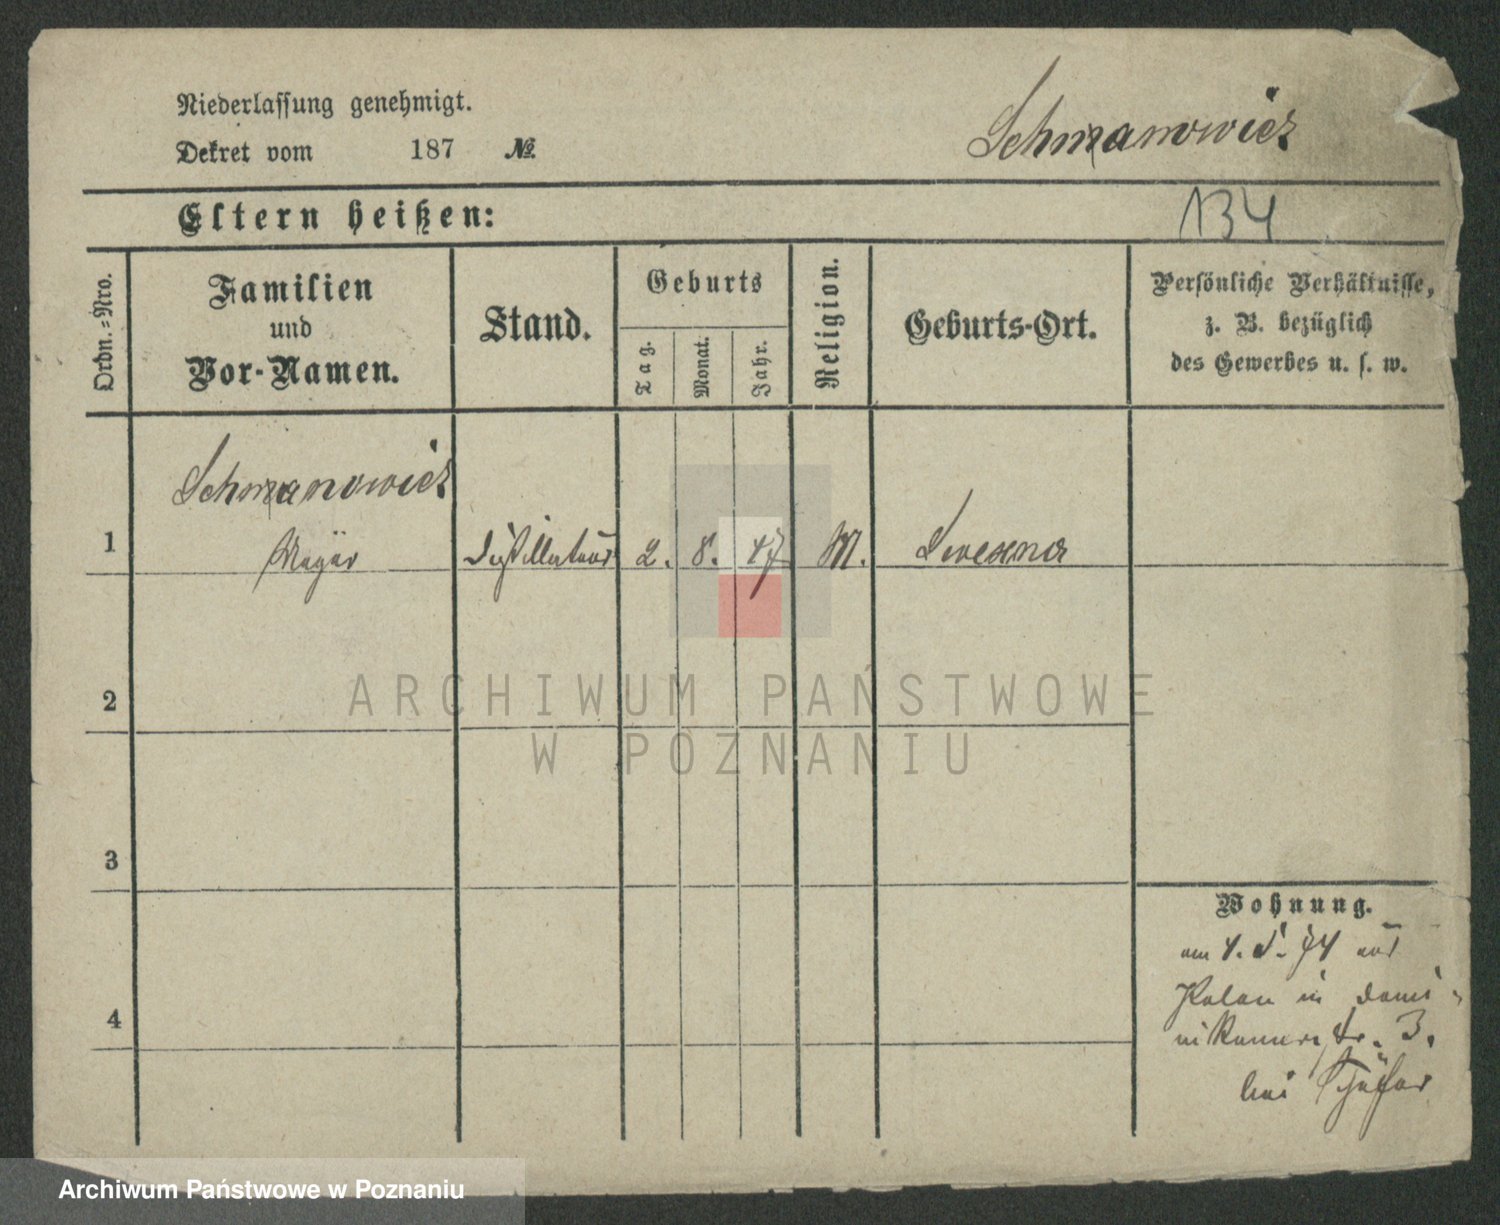 Niederlassung genehmigt.
Dekret vom 187 №
Schmanowicz
Eltern heißen:
134
Ordn.=Nro.
Familien
und
Vor-Namen.
Stand.
Geburts
Tag.
Monat.
Jahr.
Religion.
Geburts-Ort.
Persönliche Verhältnisse,
z. B. bezüglich
des Gewerbes u. s. w.
Schmanowicz
1 Mayer Distillateur 2. 8. 47 M.
2
3
4
Wohnung.
am 4. 74 aus
in Domi-
nikanerstr. 3.
bei
ARCHIWUM PAŃSTWOWE
W POZNANIU
Archiwum Państwowe w Poznaniu